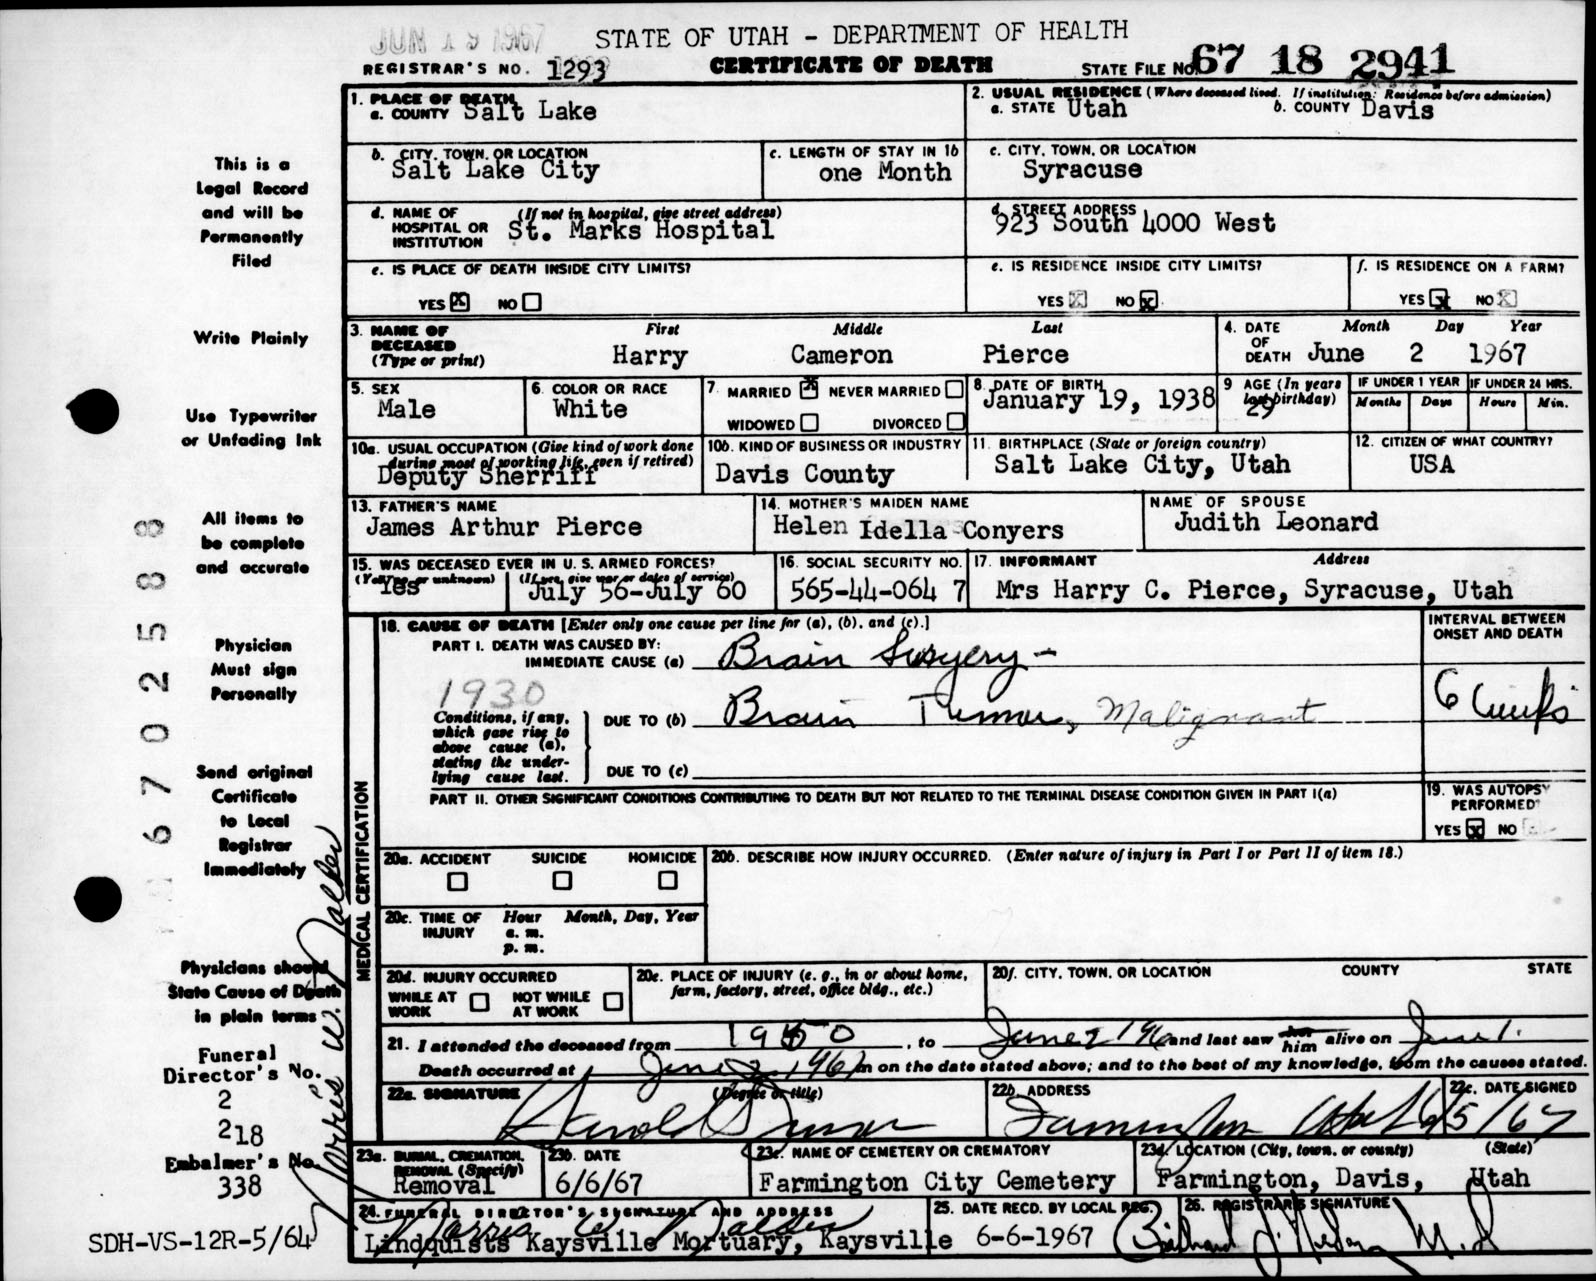 JUN 19 1967
STATE OF UTAH - DEPARTMENT OF HEALTH
REGISTRAR'S NO. 1293
CERTIFICATE OF DEATH
STATE FILE NO. 67 18 2941
1. PLACE OF DEATH
a. COUNTY Salt Lake
2. USUAL RESIDENCE (Where deceased lived. If institution: Residence before admission)
a. STATE Utah b. COUNTY Davis
b. CITY, TOWN, OR LOCATION
Salt Lake City
c. LENGTH OF STAY IN 1b
one Month
c. CITY, TOWN, OR LOCATION
Syracuse
d. NAME OF HOSPITAL OR INSTITUTION (If not in hospital, give street address)
St. Marks Hospital
d. STREET ADDRESS
923 South 4000 West
e. IS PLACE OF DEATH INSIDE CITY LIMITS?
YES X NO
e. IS RESIDENCE INSIDE CITY LIMITS?
YES X NO X
f. IS RESIDENCE ON A FARM?
YES X NO X
3. NAME OF DECEASED (Type or print)
First Middle Last
Harry Cameron Pierce
4. DATE OF DEATH Month Day Year
June 2 1967
5. SEX
Male
6. COLOR OR RACE
White
7. MARRIED X NEVER MARRIED
WIDOWED DIVORCED
8. DATE OF BIRTH
January 19, 1938
9 AGE (In years last birthday)
29
IF UNDER 1 YEAR IF UNDER 24 HRS.
Months Days Hours Min.
10a. USUAL OCCUPATION (Give kind of work done during most of working life, even if retired)
Deputy Sherriff
10b. KIND OF BUSINESS OR INDUSTRY
Davis County
11. BIRTHPLACE (State or foreign country)
Salt Lake City, Utah
12. CITIZEN OF WHAT COUNTRY?
USA
13. FATHER'S NAME
James Arthur Pierce
14. MOTHER'S MAIDEN NAME
Helen Idella Conyers
NAME OF SPOUSE
Judith Leonard
15. WAS DECEASED EVER IN U. S. ARMED FORCES?
(Yes, no, or unknown) (If yes, give war or dates of service)
Yes July 56-July 60
16. SOCIAL SECURITY NO.
565-44-064 7
17. INFORMANT Address
Mrs Harry C. Pierce, Syracuse, Utah
MEDICAL CERTIFICATION
18. CAUSE OF DEATH [Enter only one cause per line for (a), (b), and (c).]
INTERVAL BETWEEN ONSET AND DEATH
PART I. DEATH WAS CAUSED BY:
IMMEDIATE CAUSE (a) Brain Surgery -
1930
Conditions, if any, which gave rise to above cause (a), stating the underlying cause last.
DUE TO (b) Brain Tumor, Malignant
6 weeks
DUE TO (c)
PART II. OTHER SIGNIFICANT CONDITIONS CONTRIBUTING TO DEATH BUT NOT RELATED TO THE TERMINAL DISEASE CONDITION GIVEN IN PART I(a)
19. WAS AUTOPSY PERFORMED?
YES X NO
20a. ACCIDENT SUICIDE HOMICIDE
20b. DESCRIBE HOW INJURY OCCURRED. (Enter nature of injury in Part I or Part II of item 18.)
20c. TIME OF INJURY Hour Month, Day, Year
a. m.
p. m.
20d. INJURY OCCURRED
WHILE AT WORK NOT WHILE AT WORK
20e. PLACE OF INJURY (e. g., in or about home, farm, factory, street, office bldg., etc.)
20f. CITY, TOWN, OR LOCATION COUNTY STATE
21. I attended the deceased from , to June 2 196 and last saw her him alive on June 1.
Death occurred at June 2, 1967 m on the date stated above; and to the best of my knowledge, from the causes stated.
22a. SIGNATURE (Degree or title)
Harold
22b. ADDRESS
Farmington Utah
22c. DATE SIGNED
6/5/67
23a. BURIAL, CREMATION, REMOVAL (Specify)
Removal
23b. DATE
6/6/67
23c. NAME OF CEMETERY OR CREMATORY
Farmington City Cemetery
23d. LOCATION (City, town, or county) (State)
Farmington, Davis, Utah
24. FUNERAL DIRECTOR'S SIGNATURE AND ADDRESS
Lindquists Kaysville Mortuary, Kaysville
25. DATE RECD. BY LOCAL REG.
6-6-1967
26. REGISTRAR'S SIGNATURE
M.D
This is a
Legal Record
and will be
Permanently
Filed
Write Plainly
Use Typewriter
or Unfading Ink
All items to
be complete
and accurate
Physician
Must sign
Personally
Send original
Certificate
to Local
Registrar
Immediately
Physicians should
State Cause of Death
in plain terms
Funeral
Director's No.
2
218
Embalmer's No.
338
SDH-VS-12R-5/64
6702588